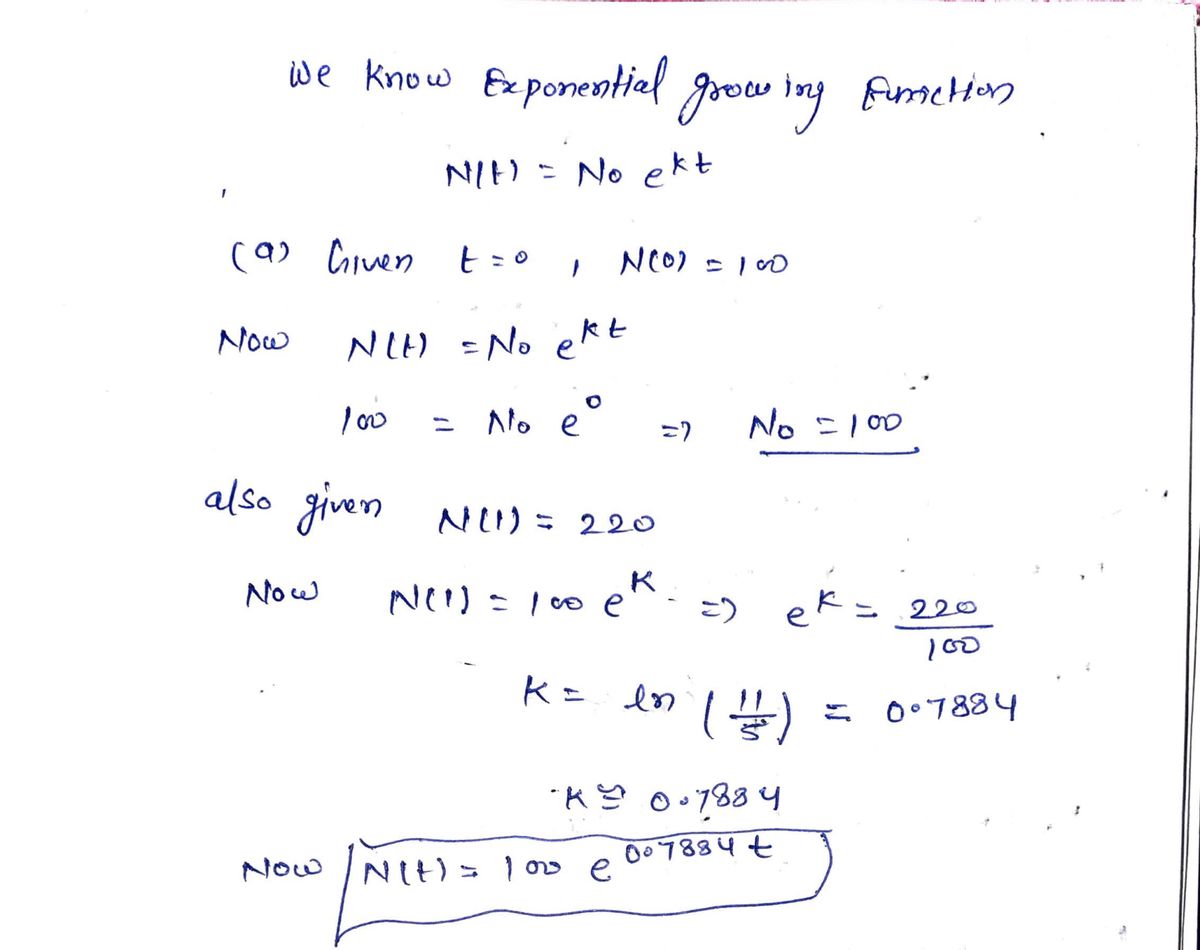 We know Exponential growing function
N(t) = N₀ e^kt
(a) Given t = 0 , N(0) = 100
Now N(t) = N₀ e^kt
100 = N₀ e^0 => N₀ = 100
also given N(1) = 220
Now N(1) = 100 e^K => e^K = 220/100
K = ln (11/5) = 0.7884
K ≅ 0.7884
Now N(t) = 100 e^0.7884t